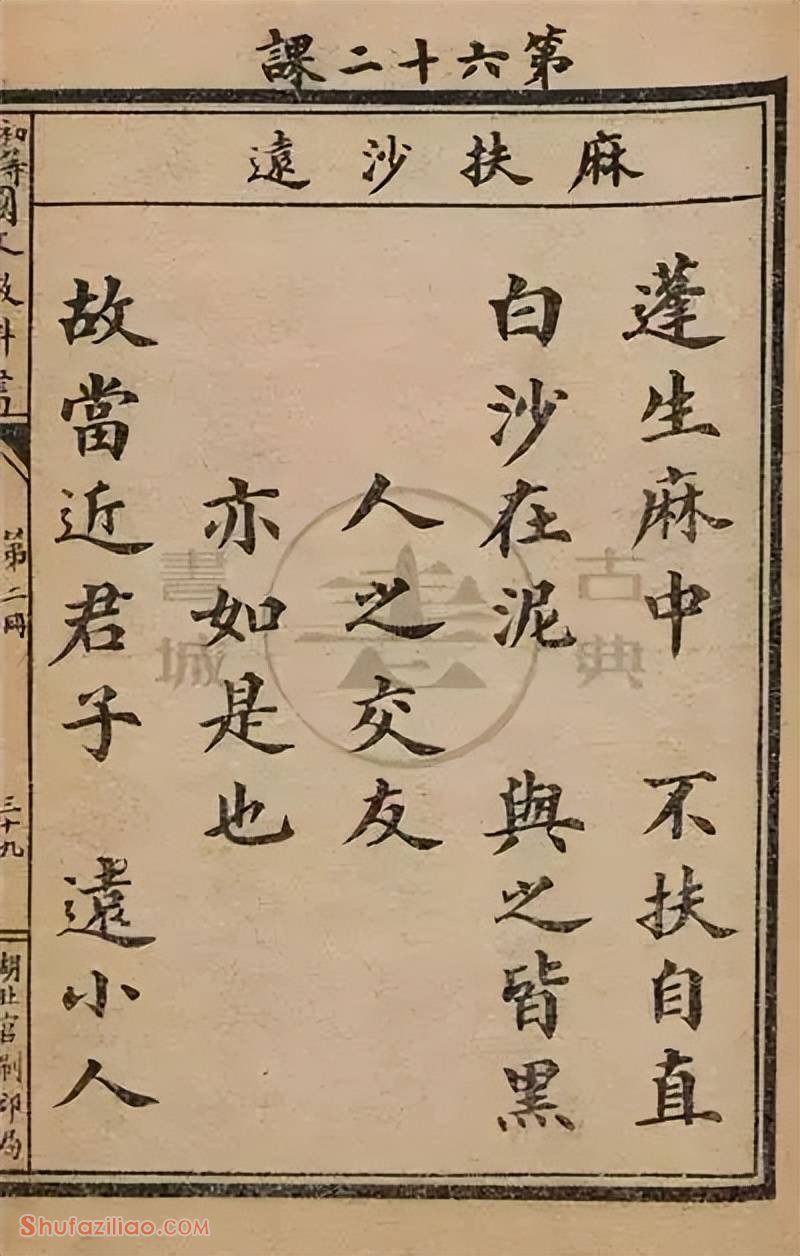 第六十二課
麻扶沙遠
蓬生麻中 不扶自直
白沙在泥 與之皆黑
人之交友
亦如是也
故當近君子 遠小人
初等國文教科書
第二冊
三十九
湖北官刷印局
古典
書城
Shufaziliao.com